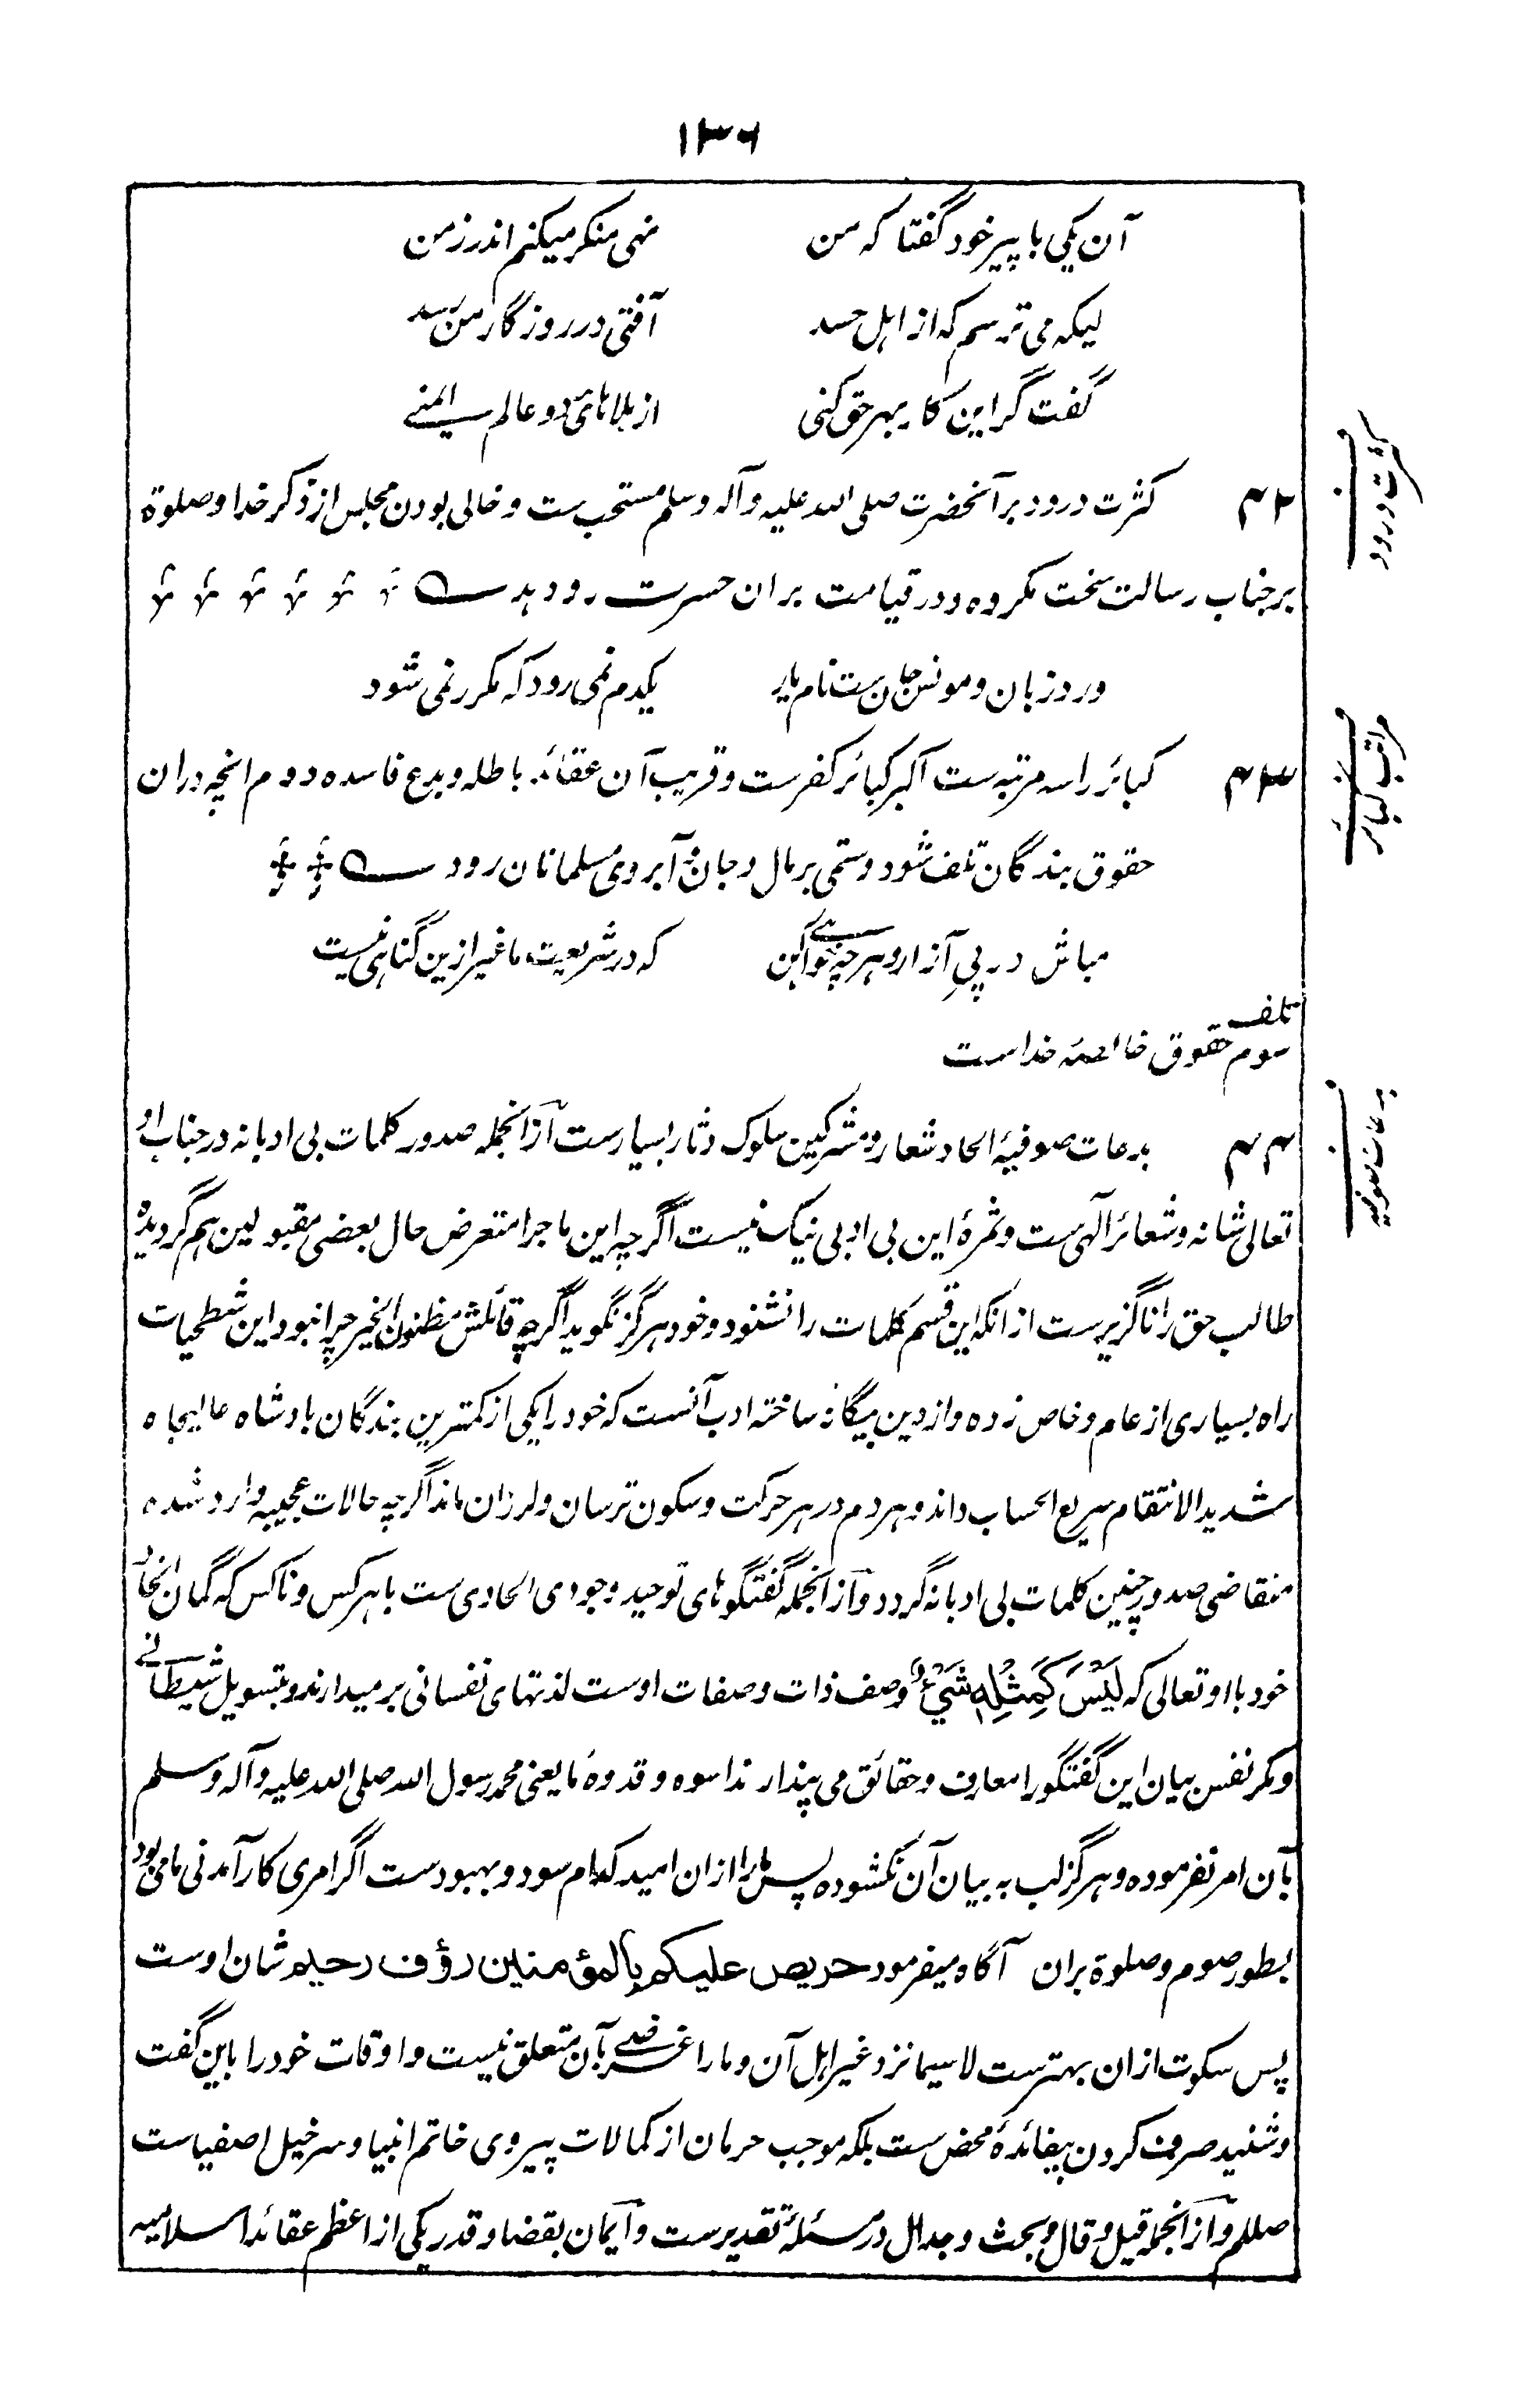 ۱۳۶
آن یکی با پیر خود گفتا که من نهی منکر میکنم اندر زمن
لیکه می ترسم که از اهل حسد آفتی در روزگار من رسد
گفت گر این کار بهر حق کنی از بلاهای دو عالم ایمنے
۴۲ کثرت درود بر آنحضرت صلی الله علیه وآله وسلم مستحب ست و خالی بودن مجلس از ذکر خدا و صلوة
کثرت درود
بر جناب رسالت سخت مکروه و در قیامت بران حسرت رو دهد
ورد زبان و مونس جان ست نام یار یکدم نمی رود که مکرر نمی شود
۴۳ کبائر را سه مرتبه ست اکبر کبائر کفرست و قریب آن عقائد باطله و بدع فاسده دوم انچه دران
مراتب کبائر
حقوق بندگان تلف شود و ستمی بر مال و جان و آبروی مسلمانان رود
مباش در پیِ آزار و هر چه خواهی کن که در شریعت ما غیر ازین گناهی نیست
سوم تلف حقوق خالصهٔ خداست
۴۴ بدعات صوفیهٔ الحاد شعار و مشرکین سلوک دثار بسیارست ازانجمله صدور کلمات بی ادبانه در جناب او
بدعات صوفیه
تعالی شانه و شعائر آلهی ست و ثمرهٔ این بی ادبی نیک نیست اگرچه این ماجرا متعرض حال بعضی مقبولین هم گردیده
طالب حق را ناگزیرست از انکه این قسم کلمات را نشنود و خود هرگز نگوید اگرچه قائلش مظنون الخیر چرا نبود این شطحیات
راه بسیاری از عام و خاص زده و از دین بیگانه ساخته ادب آنست که خود را یکی از کمترین بندگان بادشاه عالیجاه
شدید الانتقام سریع الحساب داند و هر دم در هر حرکت و سکون ترسان و لرزان ماند اگرچه حالات عجیبه وارد شده
متقاضی صدور چنین کلمات بی ادبانه گردد وازانجمله گفتگوهای توحید وجودی الحادی ست با هر کس و ناکس که گمان اتحاد
خود با او تعالی که لَيْسَ كَمِثْلِهٖ شَيْءٌ وصف ذات و صفات اوست لذتهای نفسانی بر میدارند و بتسویل شیطانے
و مکر نفس بیان این گفتگو را معارف و حقائق می پندارند اسوه و قدوهٔ ما یعنی محمد رسول الله صلی الله علیه وآله وسلم
بآن امر نفرموده و هرگز لب به بیان آن نگشوده پس ما را ازان امید کدام سود و بهبودست اگر امری کار آمدنی ما می بود
بطور صوم و صلوة بران آگاه میفرمود حریص علیکم بالمؤمنین رؤف رحیم شان اوست
پس سکوت ازان بهترست لا سیما نزد غیر اهل آن و ما را غرضے بآن متعلق نیست و اوقات خود را باین گفت
و شنید صرف کردن بیفائدهٔ محض ست بلکه موجب حرمان از کمالات پیروی خاتم انبیا و سرخیل اصفیاست
صللم وازانجمله قیل و قال و بحث و جدال در مسئلهٔ تقدیرست وآیمان بقضا و قدر یکی از اعظم عقائد اسلامیه